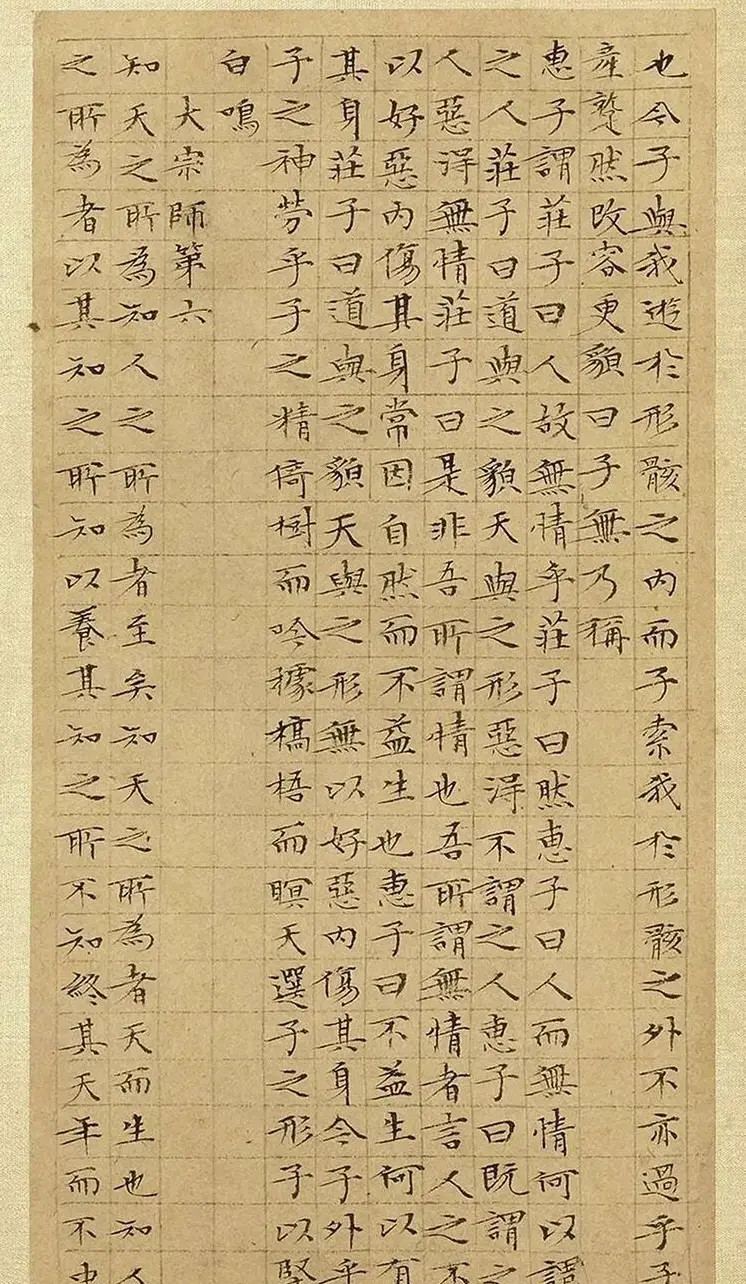 也今子與我遊於形骸之内而子索我於形骸之外不亦過乎子
產蹵然改容更貌曰子無乃稱
惠子謂莊子曰人故無情乎莊子曰然惠子曰人而無情何以謂
之人莊子曰道與之貌天與之形惡得不謂之人惠子曰既謂之
人惡得無情莊子曰是非吾所謂情也吾所謂無情者言人之不
以好惡内傷其身常因自然而不益生也惠子曰不益生何以有
其身莊子曰道與之貌天與之形無以好惡内傷其身今子外乎
子之神勞乎子之精倚樹而吟據槁梧而瞑天選子之形子以堅
白鳴
大宗師第六
知天之所為知人之所為者至矣知天之所為者天而生也知人
之所為者以其知之所知以養其知之所不知終其天年而不中